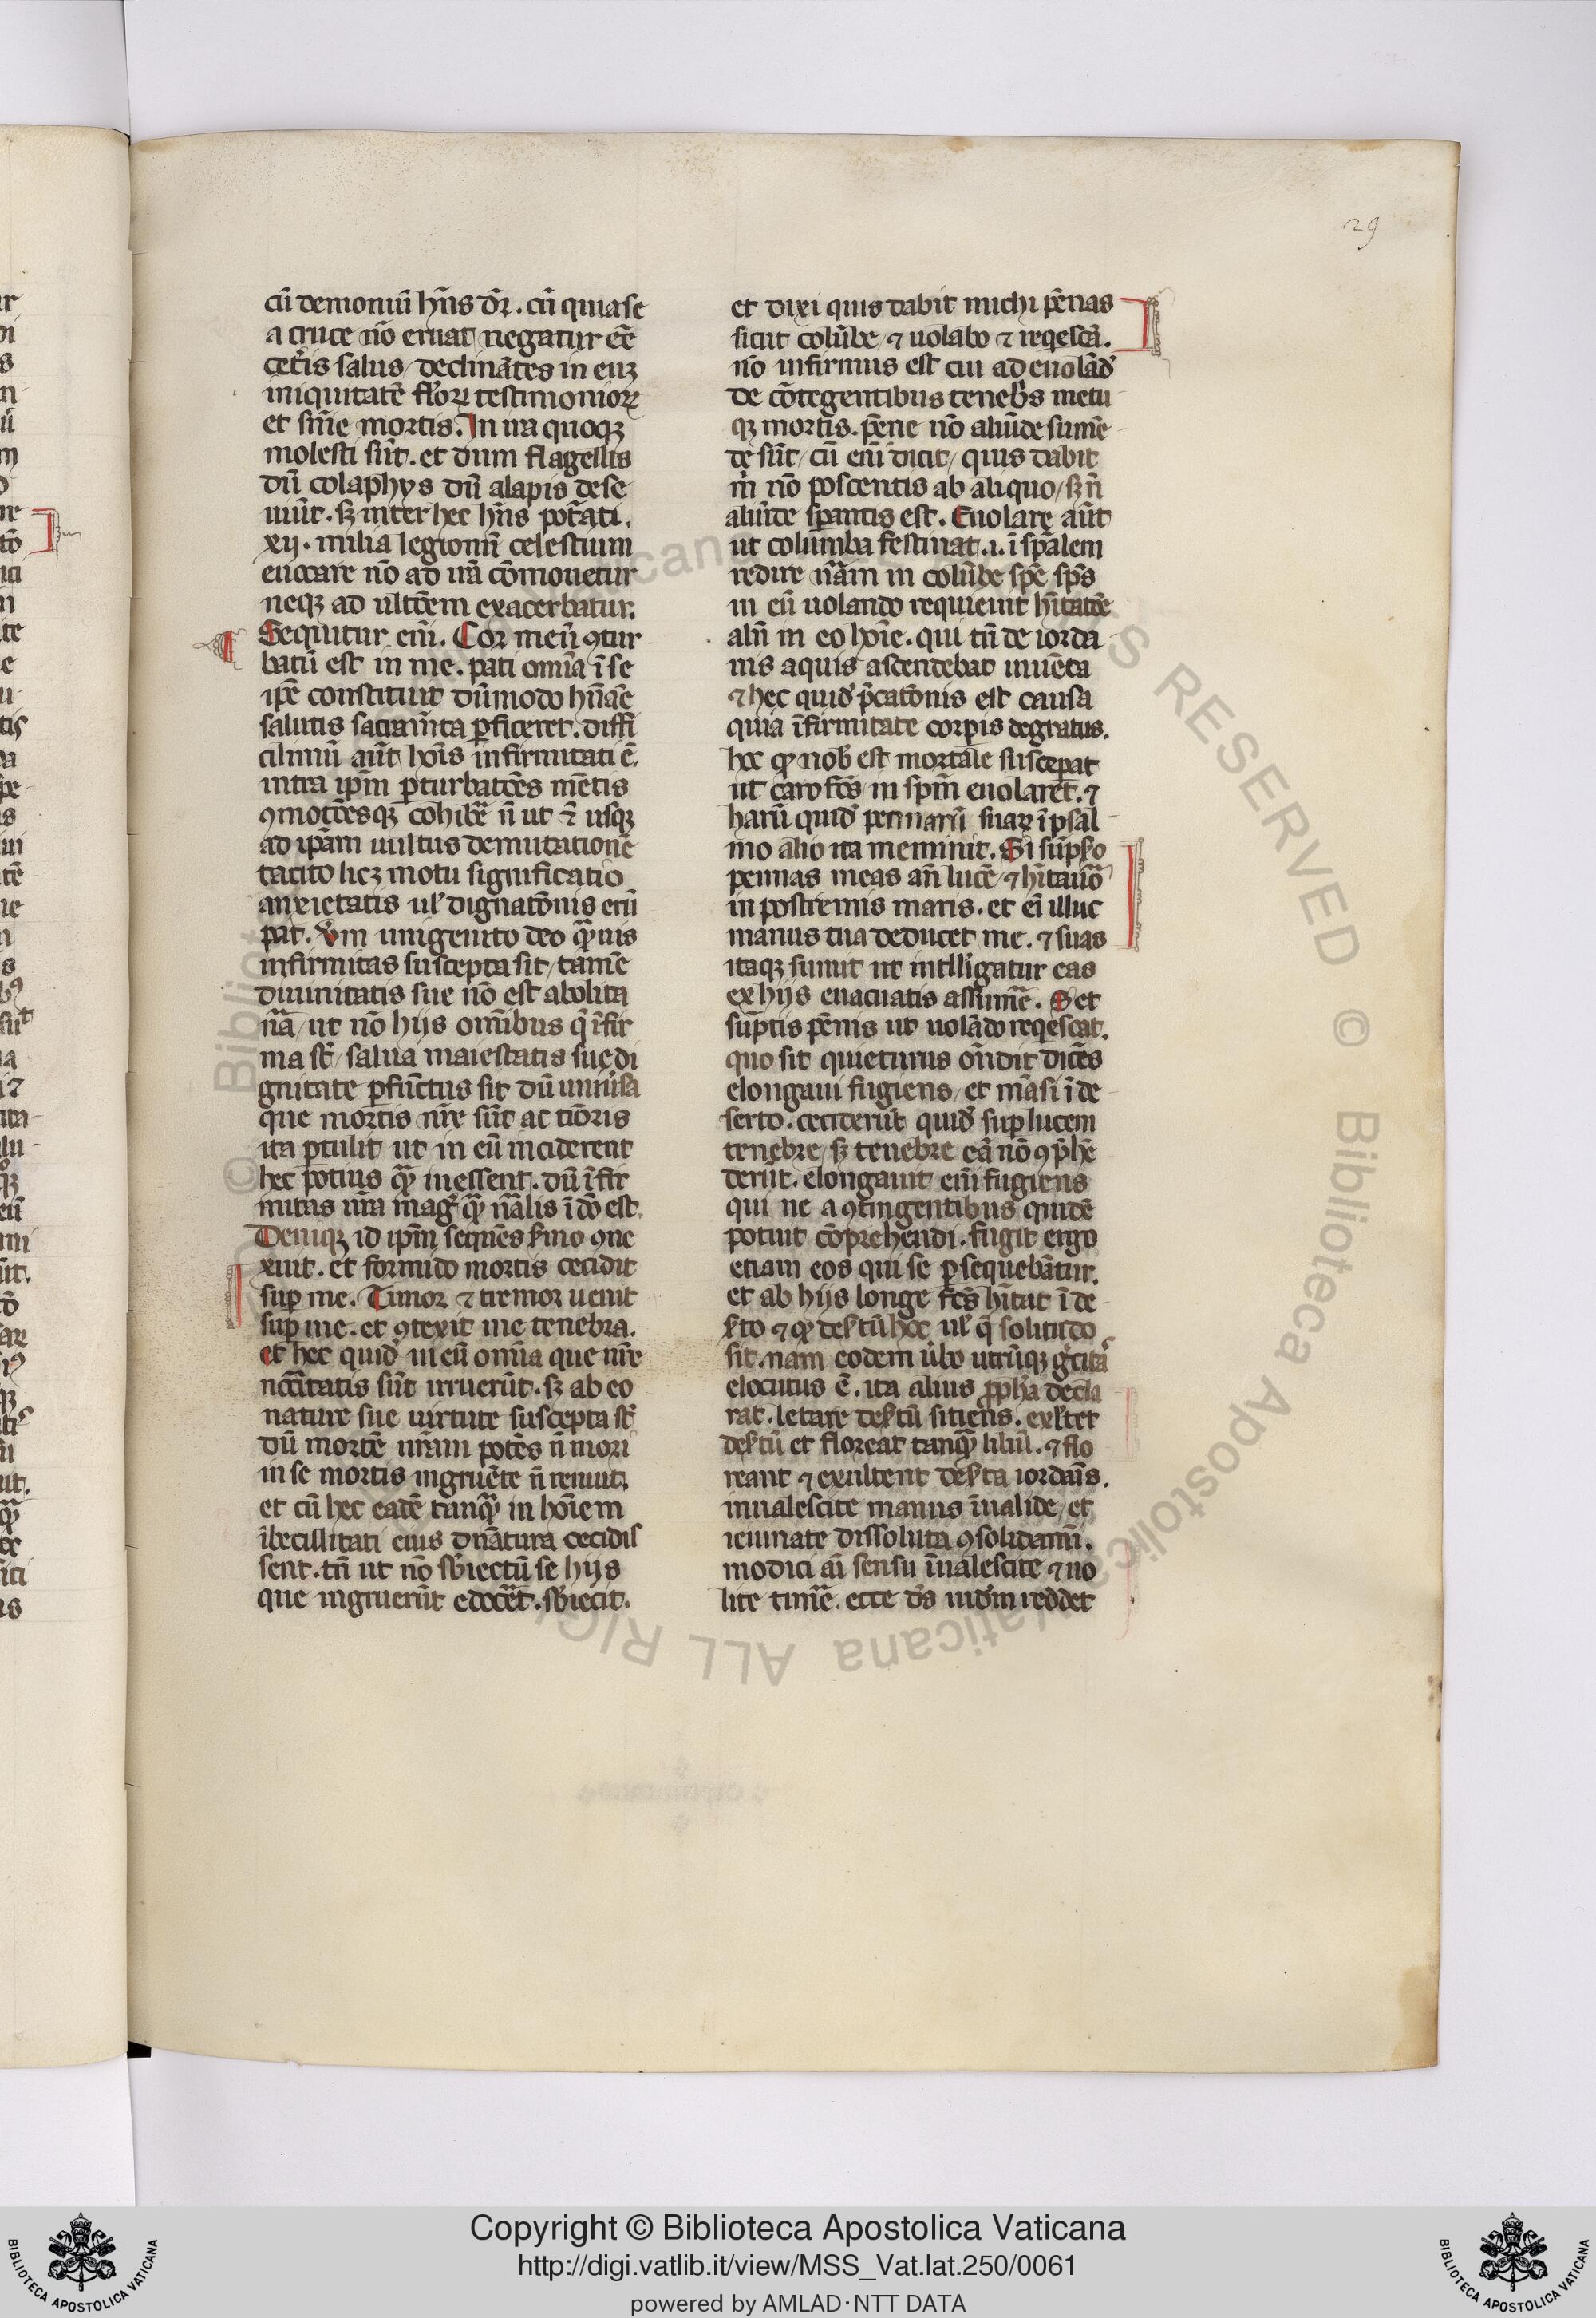 29
cū demoniū hn̄s dr̄. cū quia se
a cruce nō eruat negatur eē
cet̄is salus / declinātes in euꝫ
iniquitatē flor̄ꝝ testimonioꝝ
et sn̄ie mortis. In ira quoqꝫ
molesti sūt. et dum flagellis
dū colaphys dū alapis dese
uiūt. sꝫ inter hec hn̄s potāti.
xij. milia legionū celestium
euocare nō ad irā cōmouetur
neqꝫ ad ultōem exacerbatur.
Sequitur enī. Cor meū ꝯtur
batū est in me. pati omīa ī se
ipē constituit dūmodo hūāe
salutis sacramīta ꝑficeret. diffi
cilimū aūt hoīs infirmitati ē.
intra ipm̄ ꝑturbatōes mētis
ꝯmotōesqꝫ cohibe̅ n̄ ut ⁊ usqꝫ
ad ipam̄ uultus demutationē
tacito licꝫ motu significatio
anxietatis ul̓ dignatōnis erū
pat. Vm unigenito deo qͣuis
infirmitas suscepta sit / tamē
diuinitatis sue nō est abolita
nā / ut nō hijs omībus q̄ īfir
ma st̄ / salua maiestatis sue di
gnitate ꝑfūctus sit dū uniūsa
que mortis nr̄e sūt ac tiōris
ita ꝑtulit ut in eū inciderent
hec potius qͣ inessent. dū īfir
mitas nr̄a mag̓ qͣ nālis ī dō est.
Deniqꝫ id ipm̄ sequēs sermo ꝯne
xuit. et formido mortis cecidit
suꝑ me. Timor ⁊ tremor uenit
suꝑ me. et ꝯtexit me tenebra.
et hec quid̓ in eū omīa que nr̄e
nccītatis sūt irruerūt. sꝫ ab eo
nature sue uirtute suscepta st̄
dū mortē nr̄am potēs n̄ mori
in se mortis ingruēte n̄ renuit.
et cū hec eadē tanqͣ in hoīem
ībecillitati eius dn̄atura cecidis
sent. tn̄ ut nō sb̄iectū se hijs
que ingruerūt edocēt. sb̄iecit.
et dixi quis dabit michi pēnas
sicut colūbe / ⁊ uolabo ⁊ reqescā.
nō infirmus est cui ad euolād̓
de cōtegentibus tenebr̄s metu
qꝫ mortis. pēne nō aliūde sumē
de sūt / cū enī dicit / quis dabit
m̄ nō poscentis ab aliquo / sꝫ n̄
aliūde sꝑantis est. Euolare aūt
ut columba festinat .i. ī spālem
redire nām in colūbe spē sp̄s
in eū uolando requieuit hītatōe
alīi in eo hoīe. qui tn̄ de iorda
nis aquis ascendebat iuuēta
⁊ hec quid̓ p̄catōnis est causa
quia īfirmitate corꝑis degratus.
hoc ꝙ nob̓ est mortale susceꝑat
ut caro fc̄s in spm̄ euolaret. ⁊
harū quid̓ pennarū suaꝝ ī psal
mo alio ita meminit. Si sūpso
pennas meas an̄ lucē / ⁊ hītauͦ
in postremis maris. et eī illuc
manus tua deducet me. ⁊ suas
itaqꝫ sumit ut intlligatur eas
ex hijs euacuatis assūme̅. Set
sūptis pēnis ut uolādo reqescat.
quo sit quieturus oñdit dicēs
elongaui fugiens / et māsi ī de
serto. ceciderūt quid̓ suꝑ lucem
tenebre / sꝫ tenebre eā nō ꝯp̄hē
derūt. elongauit enī fugiens
qui ne a ꝯtingentibus quidē
potuit cōprehendi. fugit ergo
etiam eos qui se ꝑsequebātur.
et ab hijs longe fc̄s hītat ī de
ẜto ⁊ ꝙ deẜtū hoc ul̓ q̄ solitudo
sit. nam eodem ūbo utrūqꝫ gͣcitā
elocutus ē. ita alius ꝓpha decla
rat. letare deẜtū sitiens. exẜtet
deẜtū et floreat tanqͣ liliū. ⁊ flo
reant ⁊ exultent deẜta iordāis.
inualescite manus īualide / et
ieiunate dissoluta ꝯsolidamī.
modici aī sensu īualescite ⁊ no
lite time̅. ecce d̄s iud̓m reddet
Copyright © Biblioteca Apostolica Vaticana
http://digi.vatlib.it/view/MSS_Vat.lat.250/0061
powered by AMLAD·NTT DATA
BIBLIOTECA APOSTOLICA VATICANA
BIBLIOTECA APOSTOLICA VATICANA